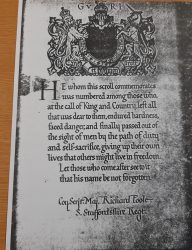 HE whom this scroll commemorates
was numbered among those who,
at the call of King and Country, left all
that was dear to them, endured hardness,
faced danger, and finally passed out of
the sight of men by the path of duty
and self-sacrifice, giving up their own
lives that others might live in freedom.
Let those who come after see to it
that his name be not forgotten.
Coy. Serjt. Maj. Richard Toole
S. Staffordshire Regt.